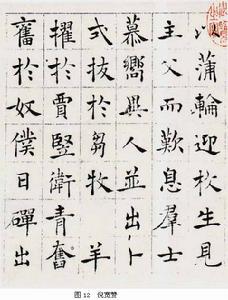 以蒲輪迎枚生見
主父而歎息羣士
慕嚮異人並出卜
式拔於芻牧羊
擢於賈豎衛青奮
奮於奴僕日磾出
图12 倪宽赞